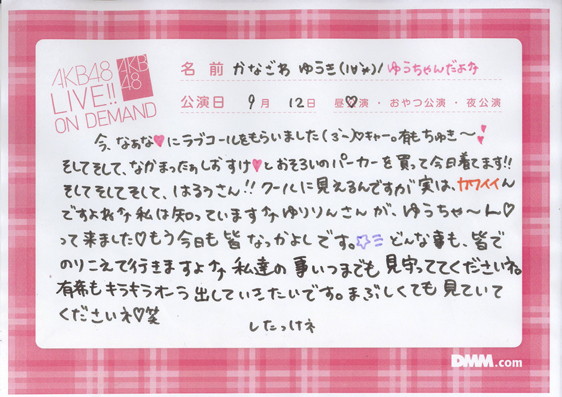 AKB48
LIVE!!
ON DEMAND
AKB
48
名前 かなざわ ゆうき(１∀ﾟ*)/ ゆうちゃんだよな
公演日 9月 12日 昼♡演・おやつ公演・夜公演
今、なぁな♥にラブコールをもらいました( 3´-)♡キャー。有もちゅき〜
そしてそして、なかまったぁしおすけ♥とおそろいのパーカーを買って今日着てます!!
そしてそしてそして、はるっさん!! クールに見えるんですが実は、カワイイん
ですよねな 私は知っていますな ゆりりんさんが、ゆうちゃ〜ん♡
って来ました♡もう今日も皆 なっかよしです。☆ミ どんな事も、皆で
のりこえて行きますよな 私達の事いつまでも見守っててくださいネ。
有希もキラキラオーラ出していきたいです。まぶしくても見ていて
くださいネ♡笑
したっけネ
DMM.com